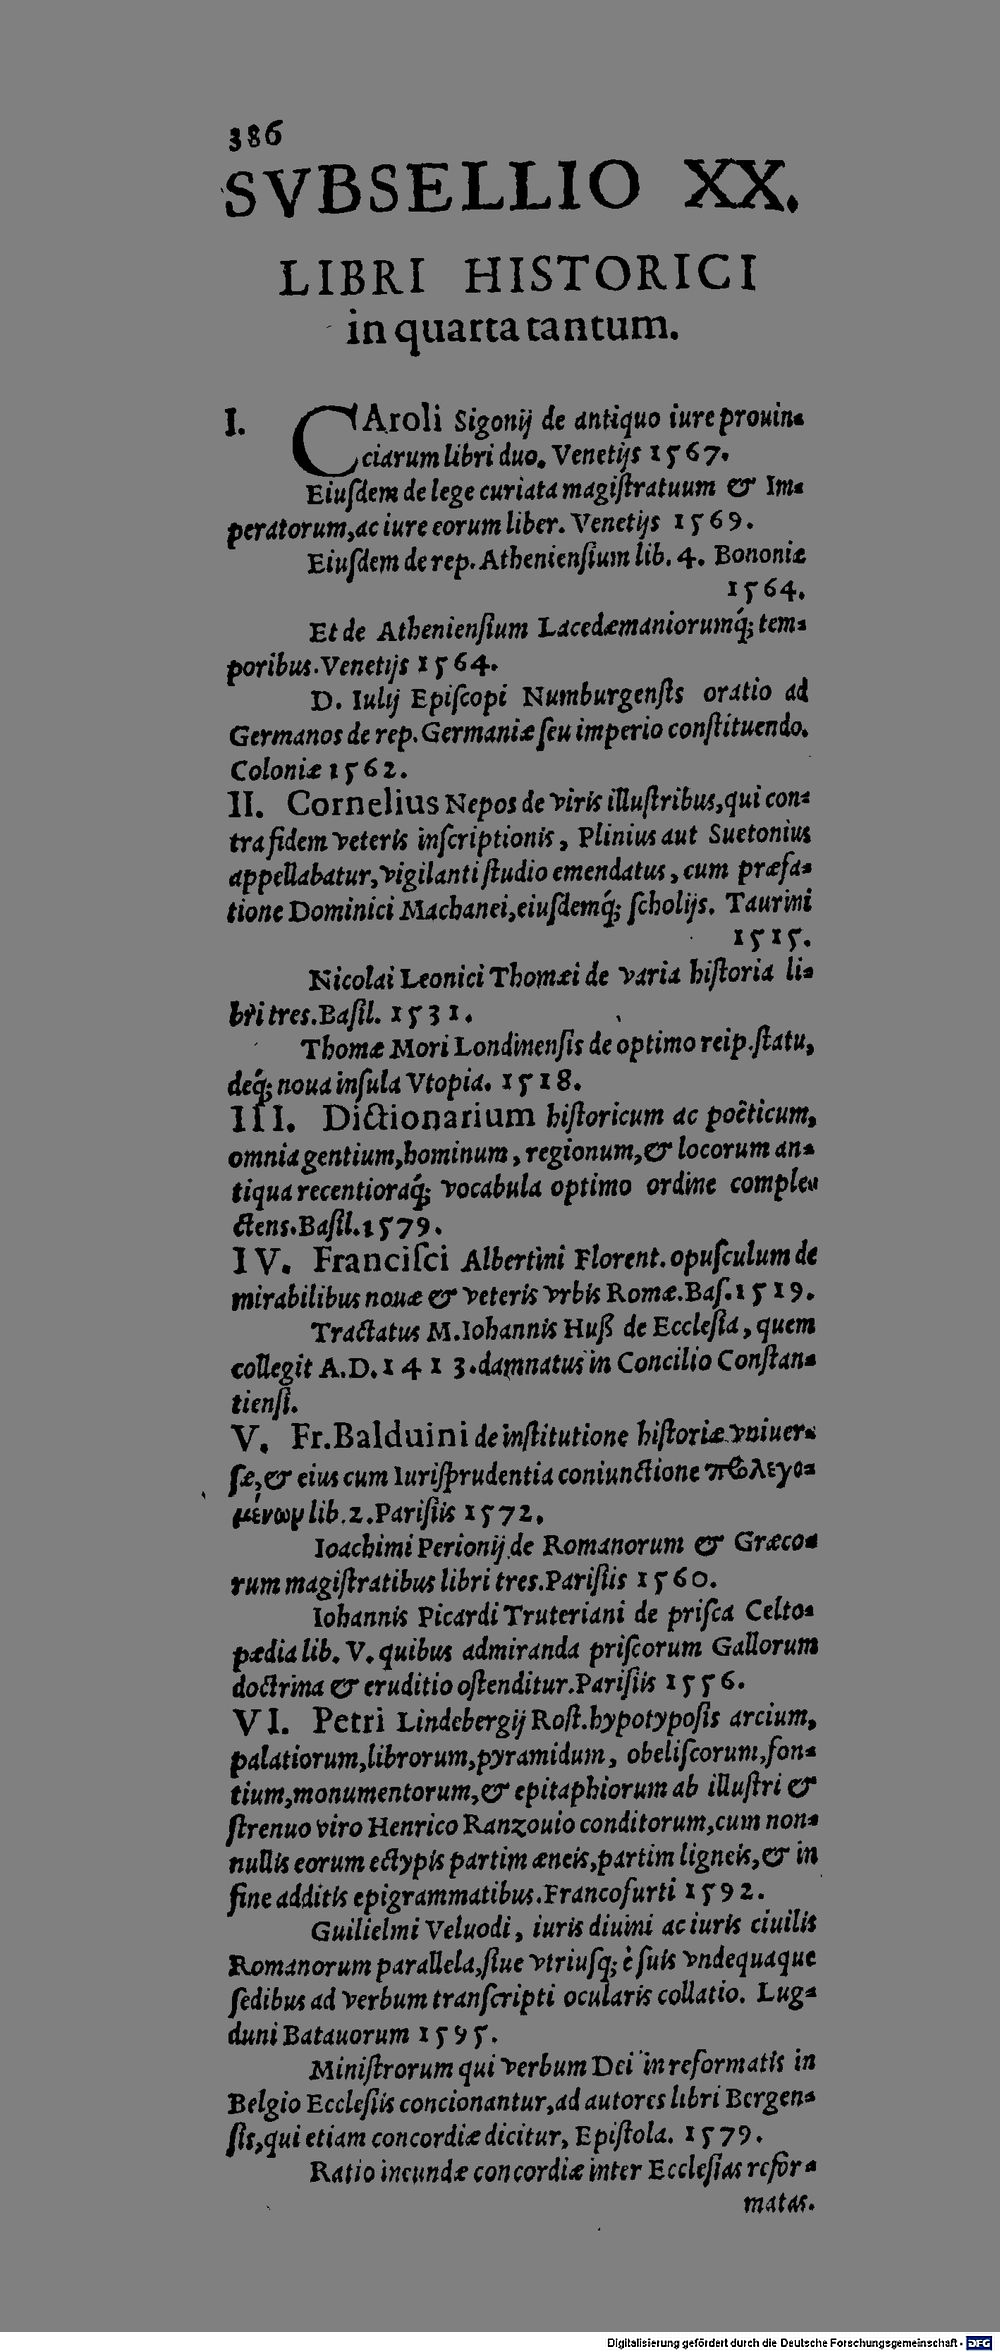 386
SVBSELLIO XX.
LIBRI HISTORICI
in quarta tantum.
I. CAroli Sigonij de antiquo iure prouin-
ciarum libri duo. Venetijs 1567.
Eiuſdem de lege curiata magiſtratuum & Im-
peratorum, ac iure eorum liber. Venetijs 1569.
Eiuſdem de rep. Athenienſium lib. 4. Bononiæ
1564.
Et de Athenienſium Lacedæmaniorumq́; tem-
poribus. Venetijs 1564.
D. Iulij Epiſcopi Numburgenſis oratio ad
Germanos de rep. Germaniæ ſeu imperio conſtituendo.
Coloniæ 1562.
II. Cornelius Nepos de viris illuſtribus, qui con-
tra fidem veteris inſcriptionis, Plinius aut Suetonius
appellabatur, vigilanti ſtudio emendatus, cum præfa-
tione Dominici Machanei, eiuſdemq́; ſcholijs. Taurini
1515.
Nicolai Leonici Thomæi de varia hiſtoria li-
bri tres. Baſil. 1531.
Thomæ Mori Londinenſis de optimo reip. ſtatu,
deq́; noua inſula Vtopia. 1518.
III. Dictionarium hiſtoricum ac poêticum,
omnia gentium, hominum, regionum, & locorum an-
tiqua recentioraq́; vocabula optimo ordine comple-
ctens. Baſil. 1579.
IV. Franciſci Albertini Florent. opuſculum de
mirabilibus nouæ & veteris vrbis Romæ. Baſ. 1519.
Tractatus M. Iohannis Huß de Eccleſia, quem
collegit A.D. 1413. damnatus in Concilio Conſtan-
tienſi.
V. Fr. Balduini de inſtitutione hiſtoriæ vniuer-
ſæ, & eius cum Iuriſprudentia coniunctione προλεγο-
μένων lib. 2. Pariſiis 1572.
Ioachimi Perionij de Romanorum & Græco-
rum magiſtratibus libri tres. Pariſiis 1560.
Iohannis Picardi Truteriani de priſca Celto-
pædia lib. V. quibus admiranda priſcorum Gallorum
doctrina & eruditio oſtenditur. Pariſiis 1556.
VI. Petri Lindebergij Roſt. hypotypoſis arcium,
palatiorum, librorum, pyramidum, obeliſcorum, fon-
tium, monumentorum, & epitaphiorum ab illuſtri &
ſtrenuo viro Henrico Ranzouio conditorum, cum non-
nullis eorum ectypis partim æneis, partim ligneis, & in
fine additis epigrammatibus. Francofurti 1592.
Guilielmi Veluodi, iuris diuini ac iuris ciuilis
Romanorum parallela, ſiue vtriuſq; è ſuis vndequaque
ſedibus ad verbum tranſcripti ocularis collatio. Lug-
duni Batauorum 1595.
Miniſtrorum qui verbum Dei in reformatis in
Belgio Eccleſiis concionantur, ad autores libri Bergen-
ſis, qui etiam concordiæ dicitur, Epiſtola. 1579.
Ratio ineundæ concordiæ inter Eccleſias refor-
matas.
Digitalisierung gefördert durch die Deutsche Forschungsgemeinschaft - DFG